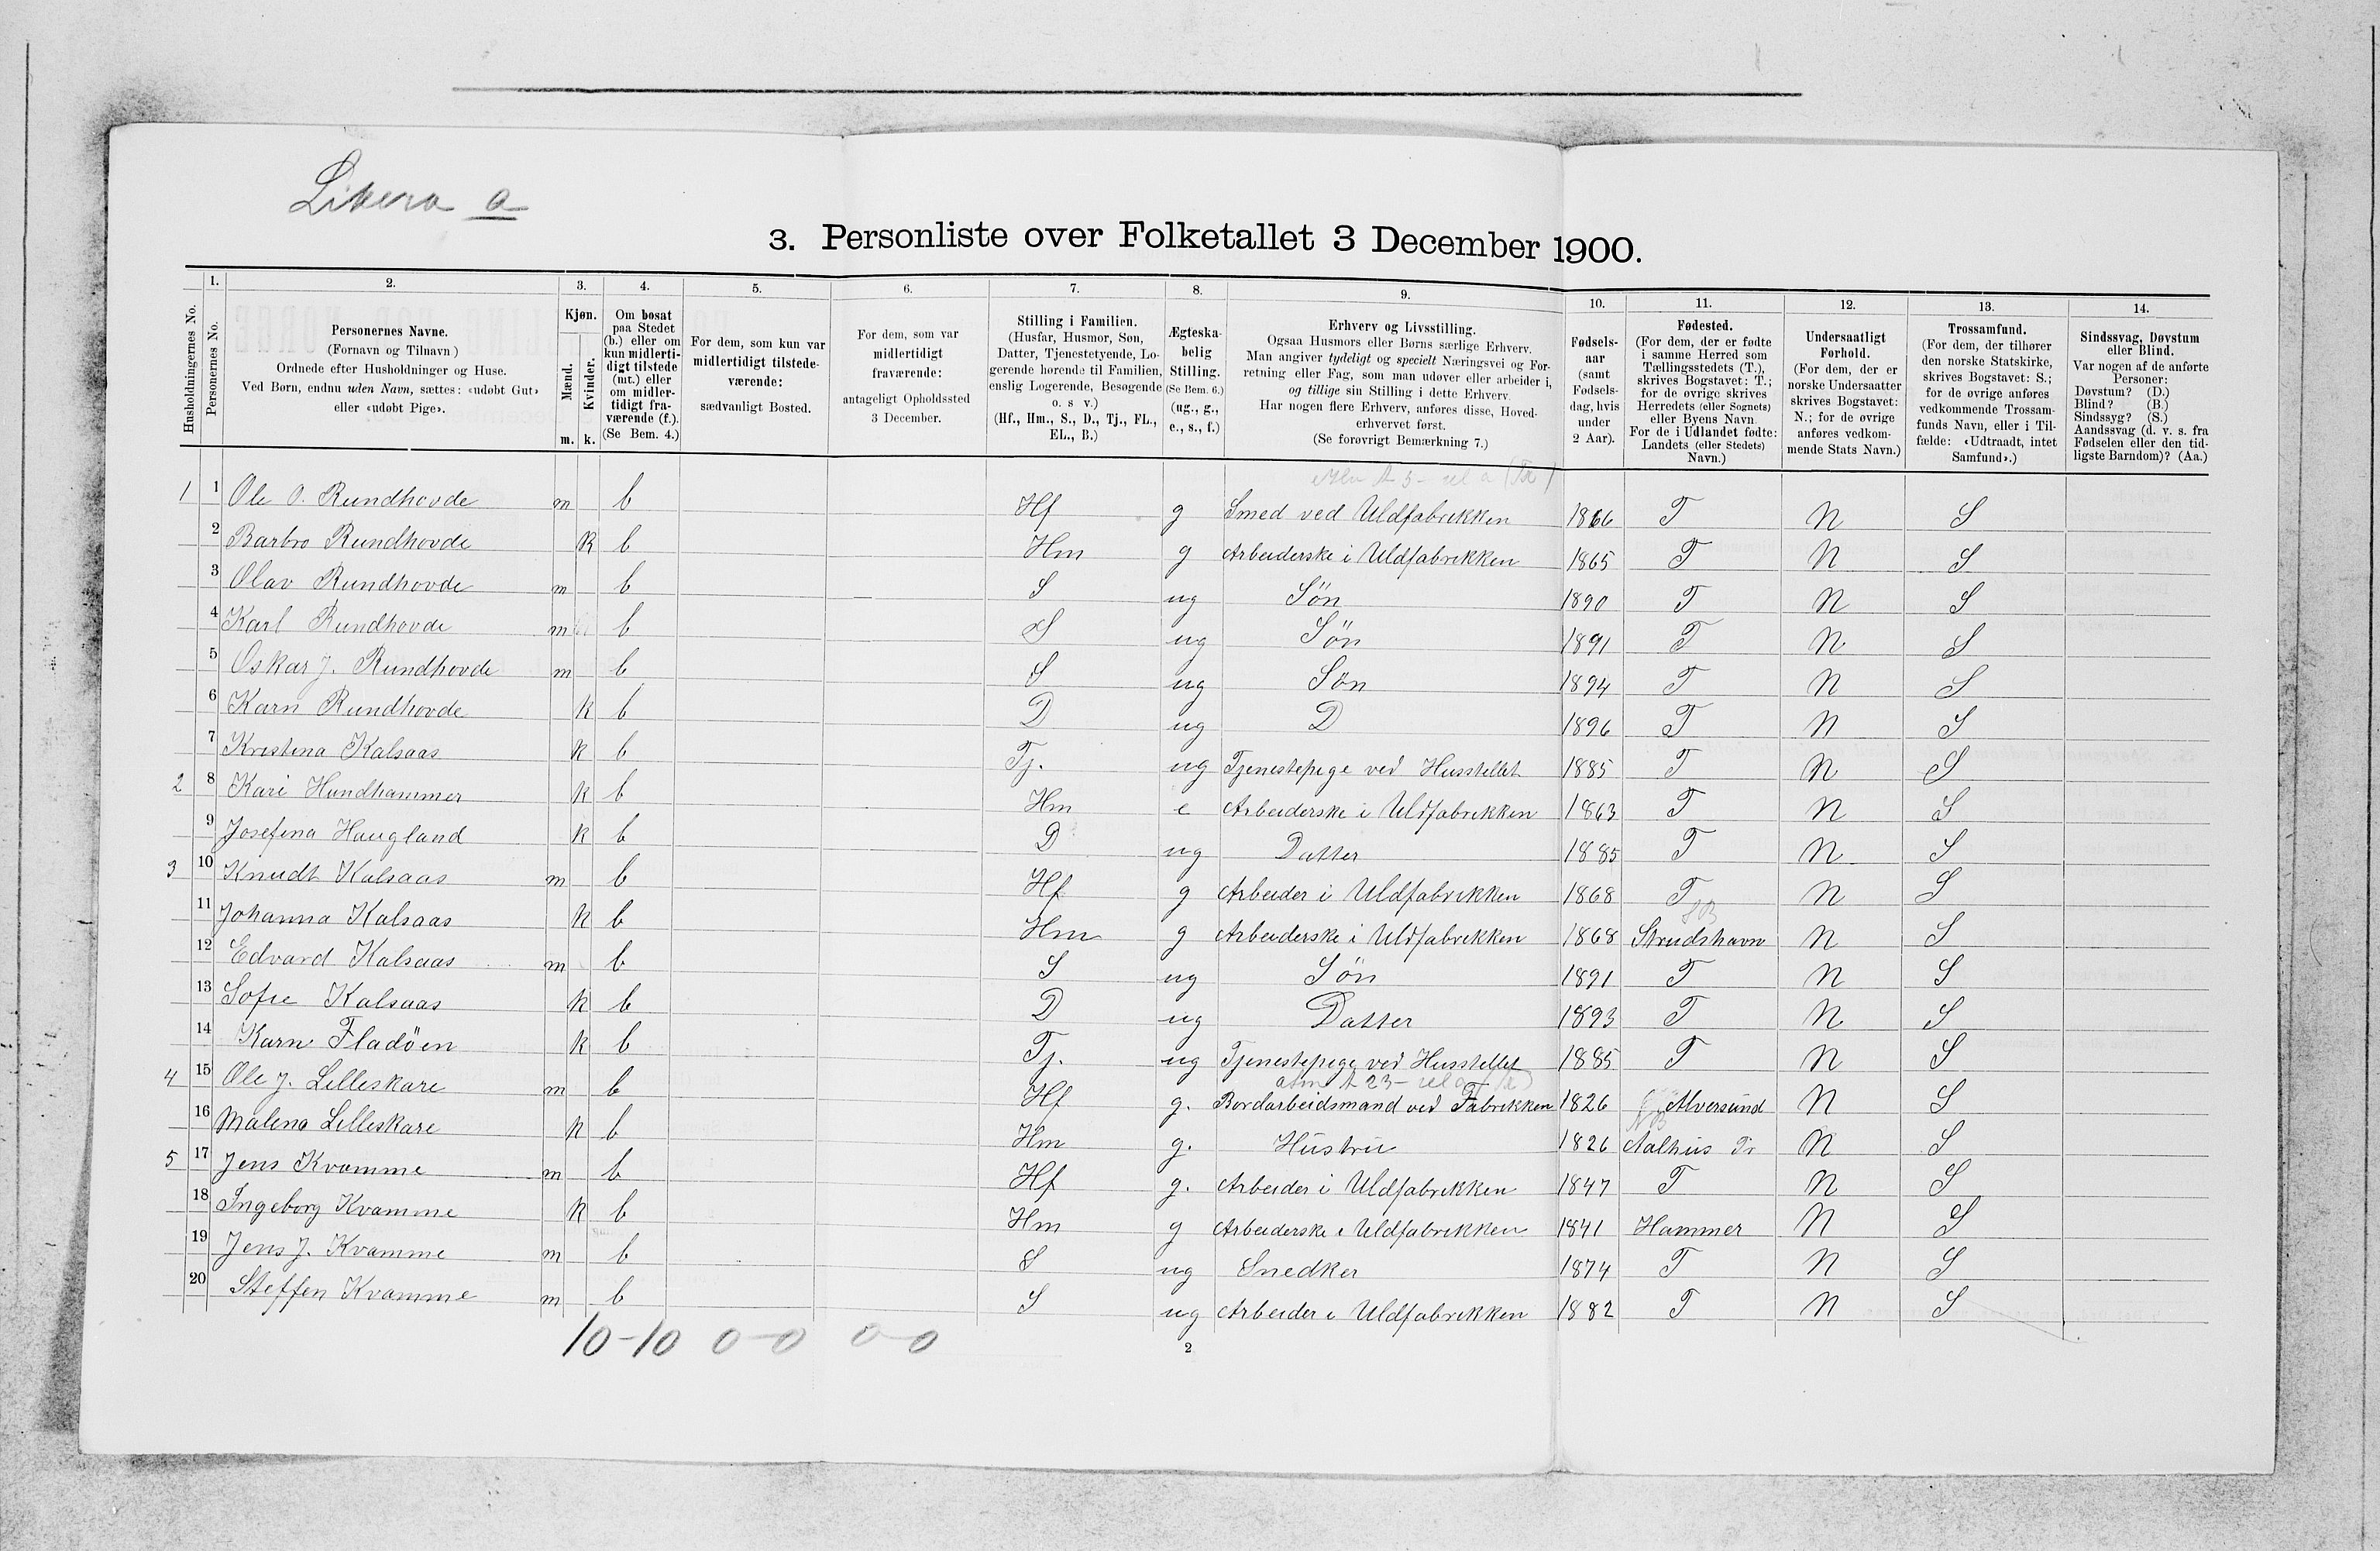 Litera a
3. Personliste over Folketallet 3 December 1900.
Husholdningernes No.
1.
Personernes No.
2.
Personernes Navne.
(Fornavn og Tilnavn)
Ordnede efter Husholdninger og Huse.
Ved Børn, endnu uden Navn, sættes: «udøbt Gut»
eller «udøbt Pige».
3.
Kjøn.
Mænd.
Kvinder.
m. k.
4.
Om bosat
paa Stedet
(b.) eller om
kun midlerti-
digt tilstede
(mt.) eller
om midler-
tidigt fra-
værende (f.).
(Se Bem. 4.)
5.
For dem, som kun var
midlertidigt tilstede-
værende:
sædvanligt Bosted.
6.
For dem, som var
midlertidigt
fraværende:
antageligt Opholdssted
3 December.
7.
Stilling i Familien.
(Husfar, Husmor, Søn,
Datter, Tjenestetyende, Lo-
gerende hørende til Familien,
enslig Logerende, Besøgende
o. s v.)
(Hf., Hm., S., D., Tj., FL.,
EL., B.)
8.
Ægteska-
belig
Stilling.
(Se Bem. 6.)
(ug., g.,
e., s., f.)
9.
Erhverv og Livsstilling.
Ogsaa Husmors eller Børns særlige Erhverv.
Man angiver tydeligt og specielt Næringsvei og For-
retning eller Fag, som man udøver eller arbeider i,
og tillige sin Stilling i dette Erhverv.
Har nogen flere Erhverv, anføres disse, Hoved-
erhvervet først.
(Se forøvrigt Bemærkning 7.)
10.
Fødsels-
aar
(samt
Fødsels-
dag, hvis
under
2 Aar).
11.
Fødested.
(For dem, der er fødte
i samme Herred som
Tællingsstedets (T.),
skrives Bogstavet: T.;
for de øvrige skrives
Herredets (eller Sognets)
eller Byens Navn.
For de i Udlandet fødte:
Landets (eller Stedets)
Navn.)
12.
Undersaatligt
Forhold.
(For dem, der er
norske Undersaatter
skrives Bogstavet:
N.; for de øvrige
anføres vedkom-
mende Stats Navn.)
13.
Trossamfund.
(For dem, der tilhører
den norske Statskirke,
skrives Bogstavet: S.;
for de øvrige anføres
vedkommende Trossam-
funds Navn, eller i Til-
fælde: «Udtraadt, intet
Samfund».)
14.
Sindssvag, Døvstum
eller Blind.
Var nogen af de anførte
Personer:
Døvstum? (D.)
Blind? (B.)
Sindssyg? (S.)
Aandssvag (d. v. s. fra
Fødselen eller den tid-
ligste Barndom)? (Aa.)
1 1 Ole O. Rundhovde m b Hf g Smed ved Uldfabrikken 1866 T N S
2 Barbro Rundhovde k b Hm g Arbeiderske i Uldfabrikken 1865 T N S
3 Olav Rundhovde m b S ug Søn 1890 T N S
4 Karl Rundhovde m b S ug Søn 1891 T N S
5 Oskar J. Rundhovde m b S ug Søn 1894 T N S
6 Karn Rundhovde k b D ug D 1896 T N S
7 Kristina Kalsaas k b Tj. ug Tjenestepige ved Husstellet 1885 T N S
2 8 Kari Hundhammer k b Hm e Arbeiderske i Uldfabrikken 1863 T N S
9 Josefina Haugland k b D ug Datter 1885 T N S
3 10 Knudt Kalsaas m b Hf g Arbeider i Uldfabrikken 1868 T N S
11 Johanna Kalsaas k b Hm g Arbeiderske i Uldfabrikken 1868 Strudshavn N S
12 Edvard Kalsaas m b S ug Søn 1891 T N S
13 Sofie Kalsaas k b D ug Datter 1893 T N S
14 Karn Fladöen k b Tj. ug Tjenestepige ved Husstellet 1885 T N S
4 15 Ole J. Lilleskare m b Hf g. Bordarbeidsmand ved Fabrikken 1826 Alversund N S
16 Malena Lilleskare k b Hm g. Hustru 1826 Aalhus N S
5 17 Jens Kvamme m b Hf g. Arbeider i Uldfabrikken 1847 T N S
18 Ingeborg Kvamme k b Hm g Arbeiderske i Uldfabrikken 1841 Hammer N S
19 Jens J. Kvamme m b S ug Snedker 1874 T N S
20 Steffen Kvamme m b S ug Arbeider i Uldfabrikken 1882 T N S
10-10 0-0 0-0
2